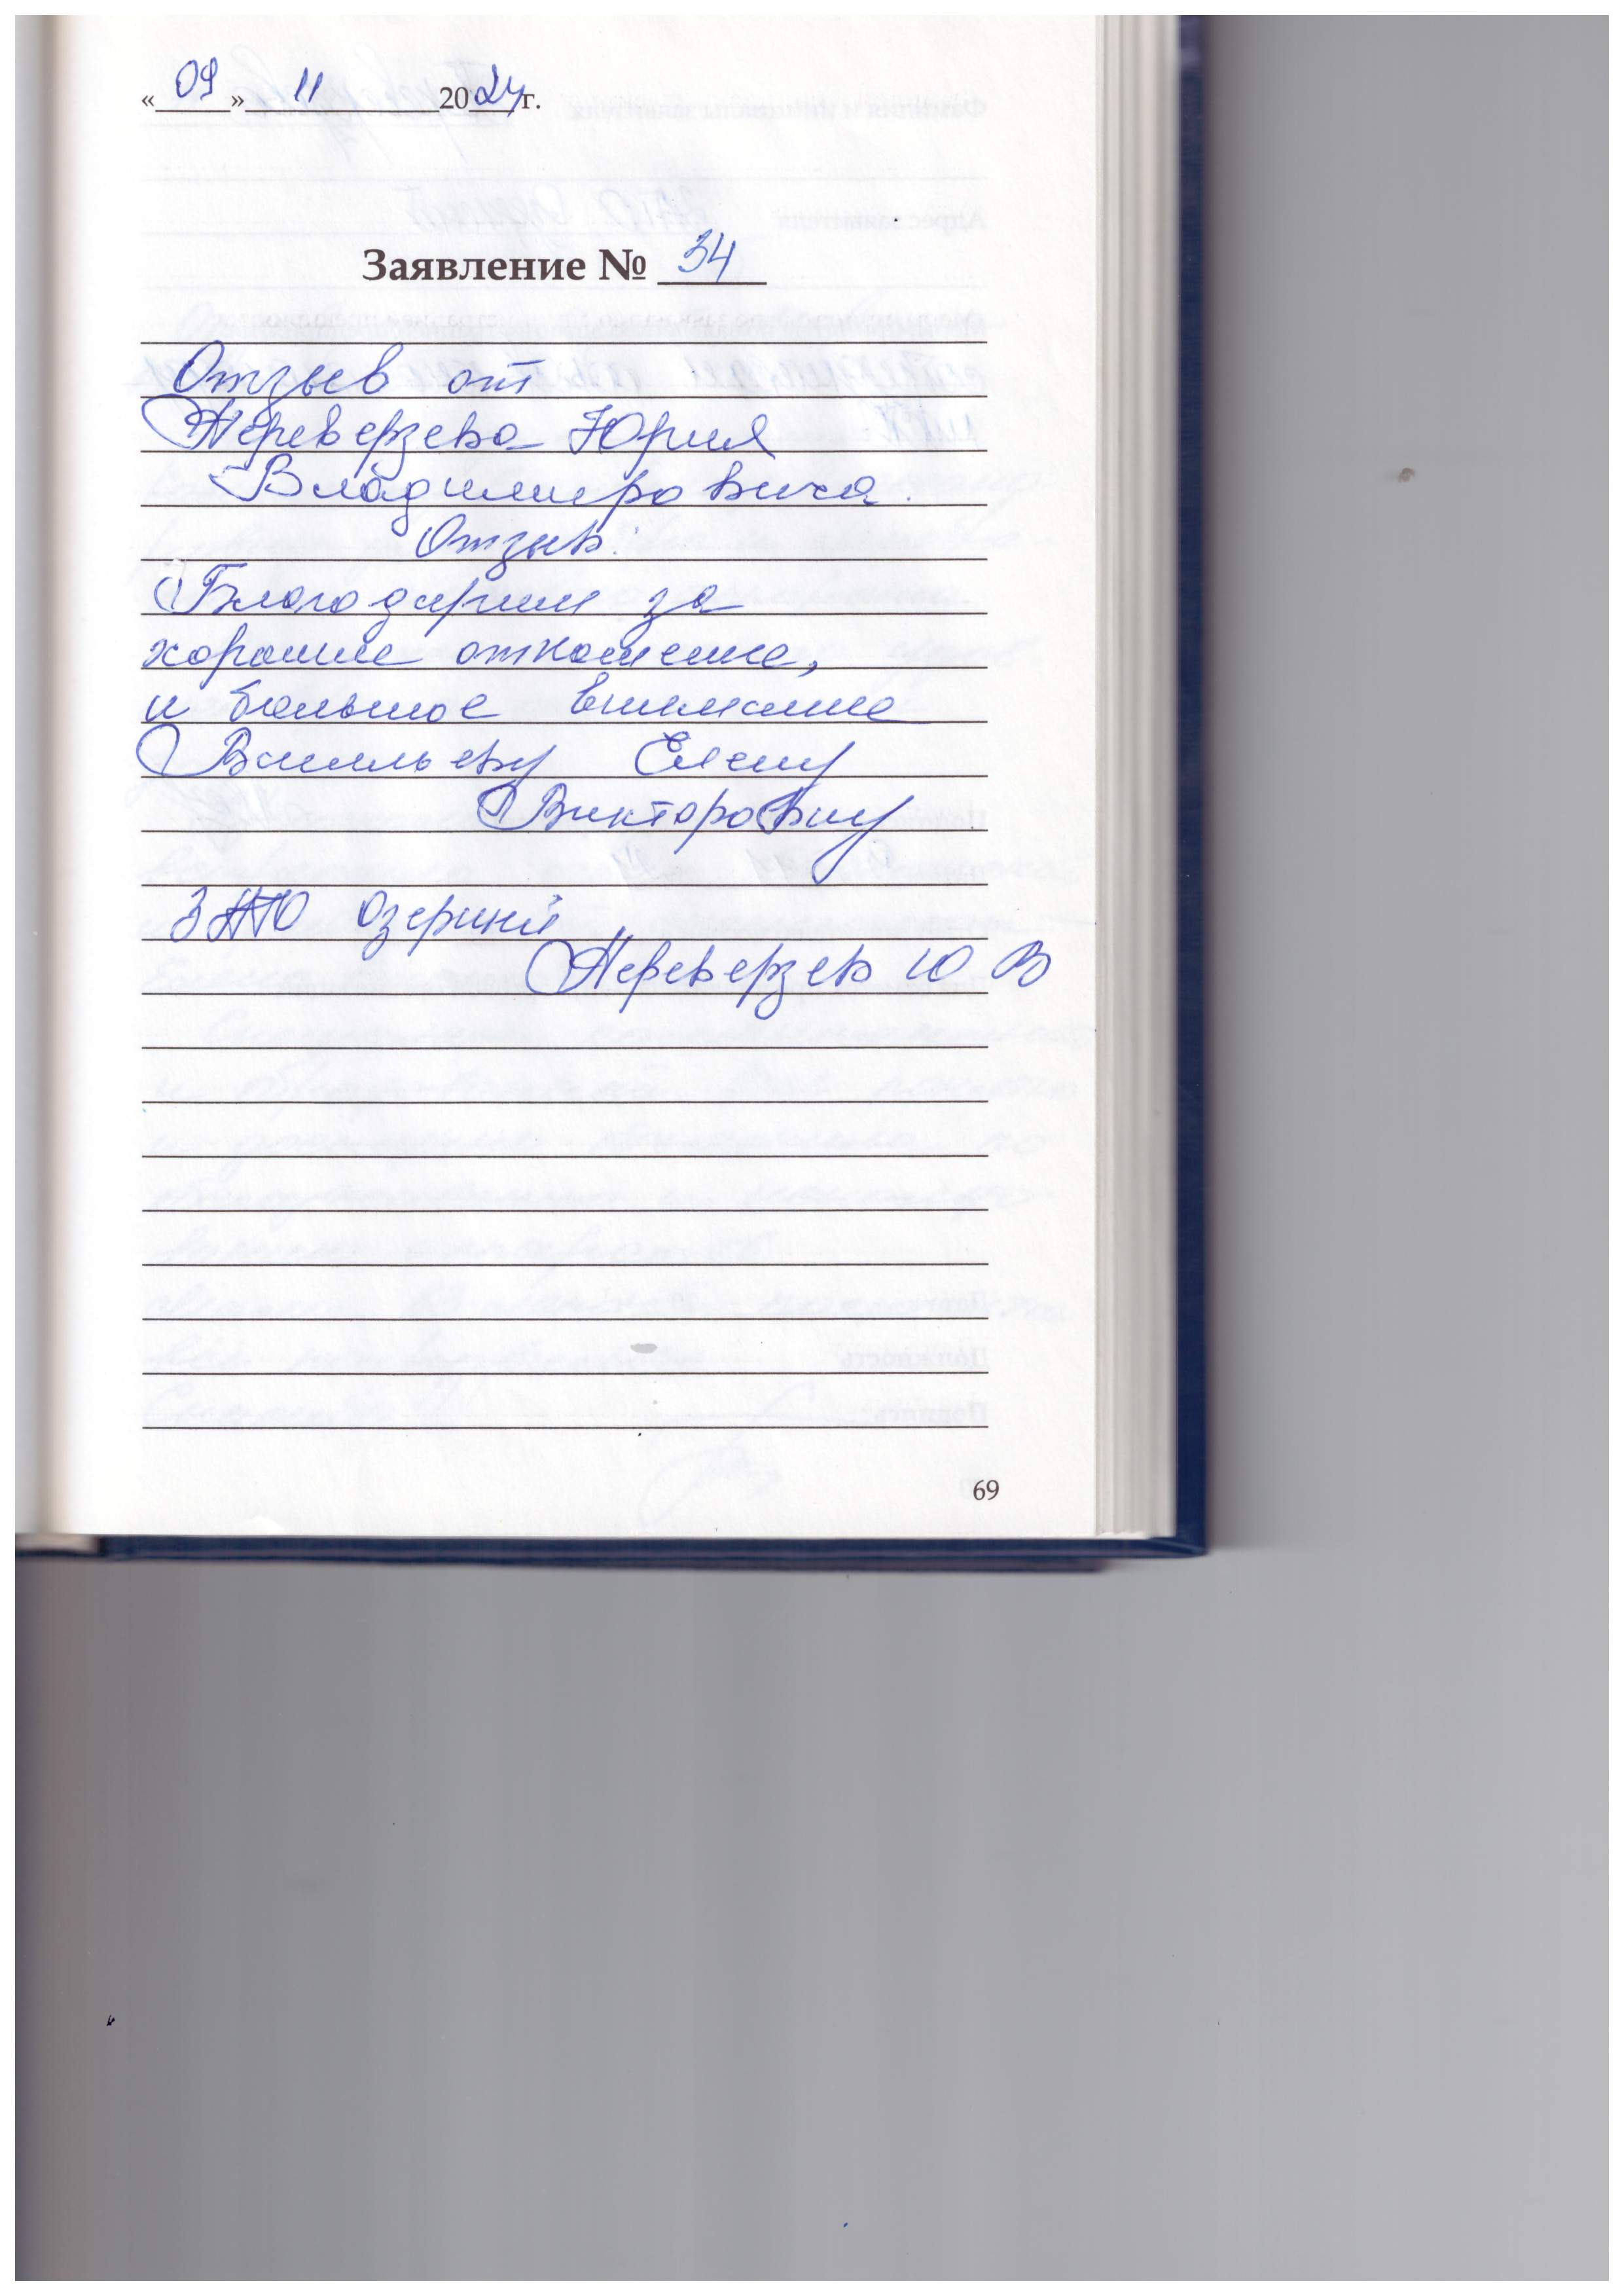 «09» 11 2024 г.
Заявление № 34
Отзыв от
Переверзева Юрия
Владимировича.
Отзыв:
Благодарим за
хорошие отношение,
и большое внимание
Васильеву Елену
Викторовну
ЗАТО Озерный
Переверзев Ю В
69